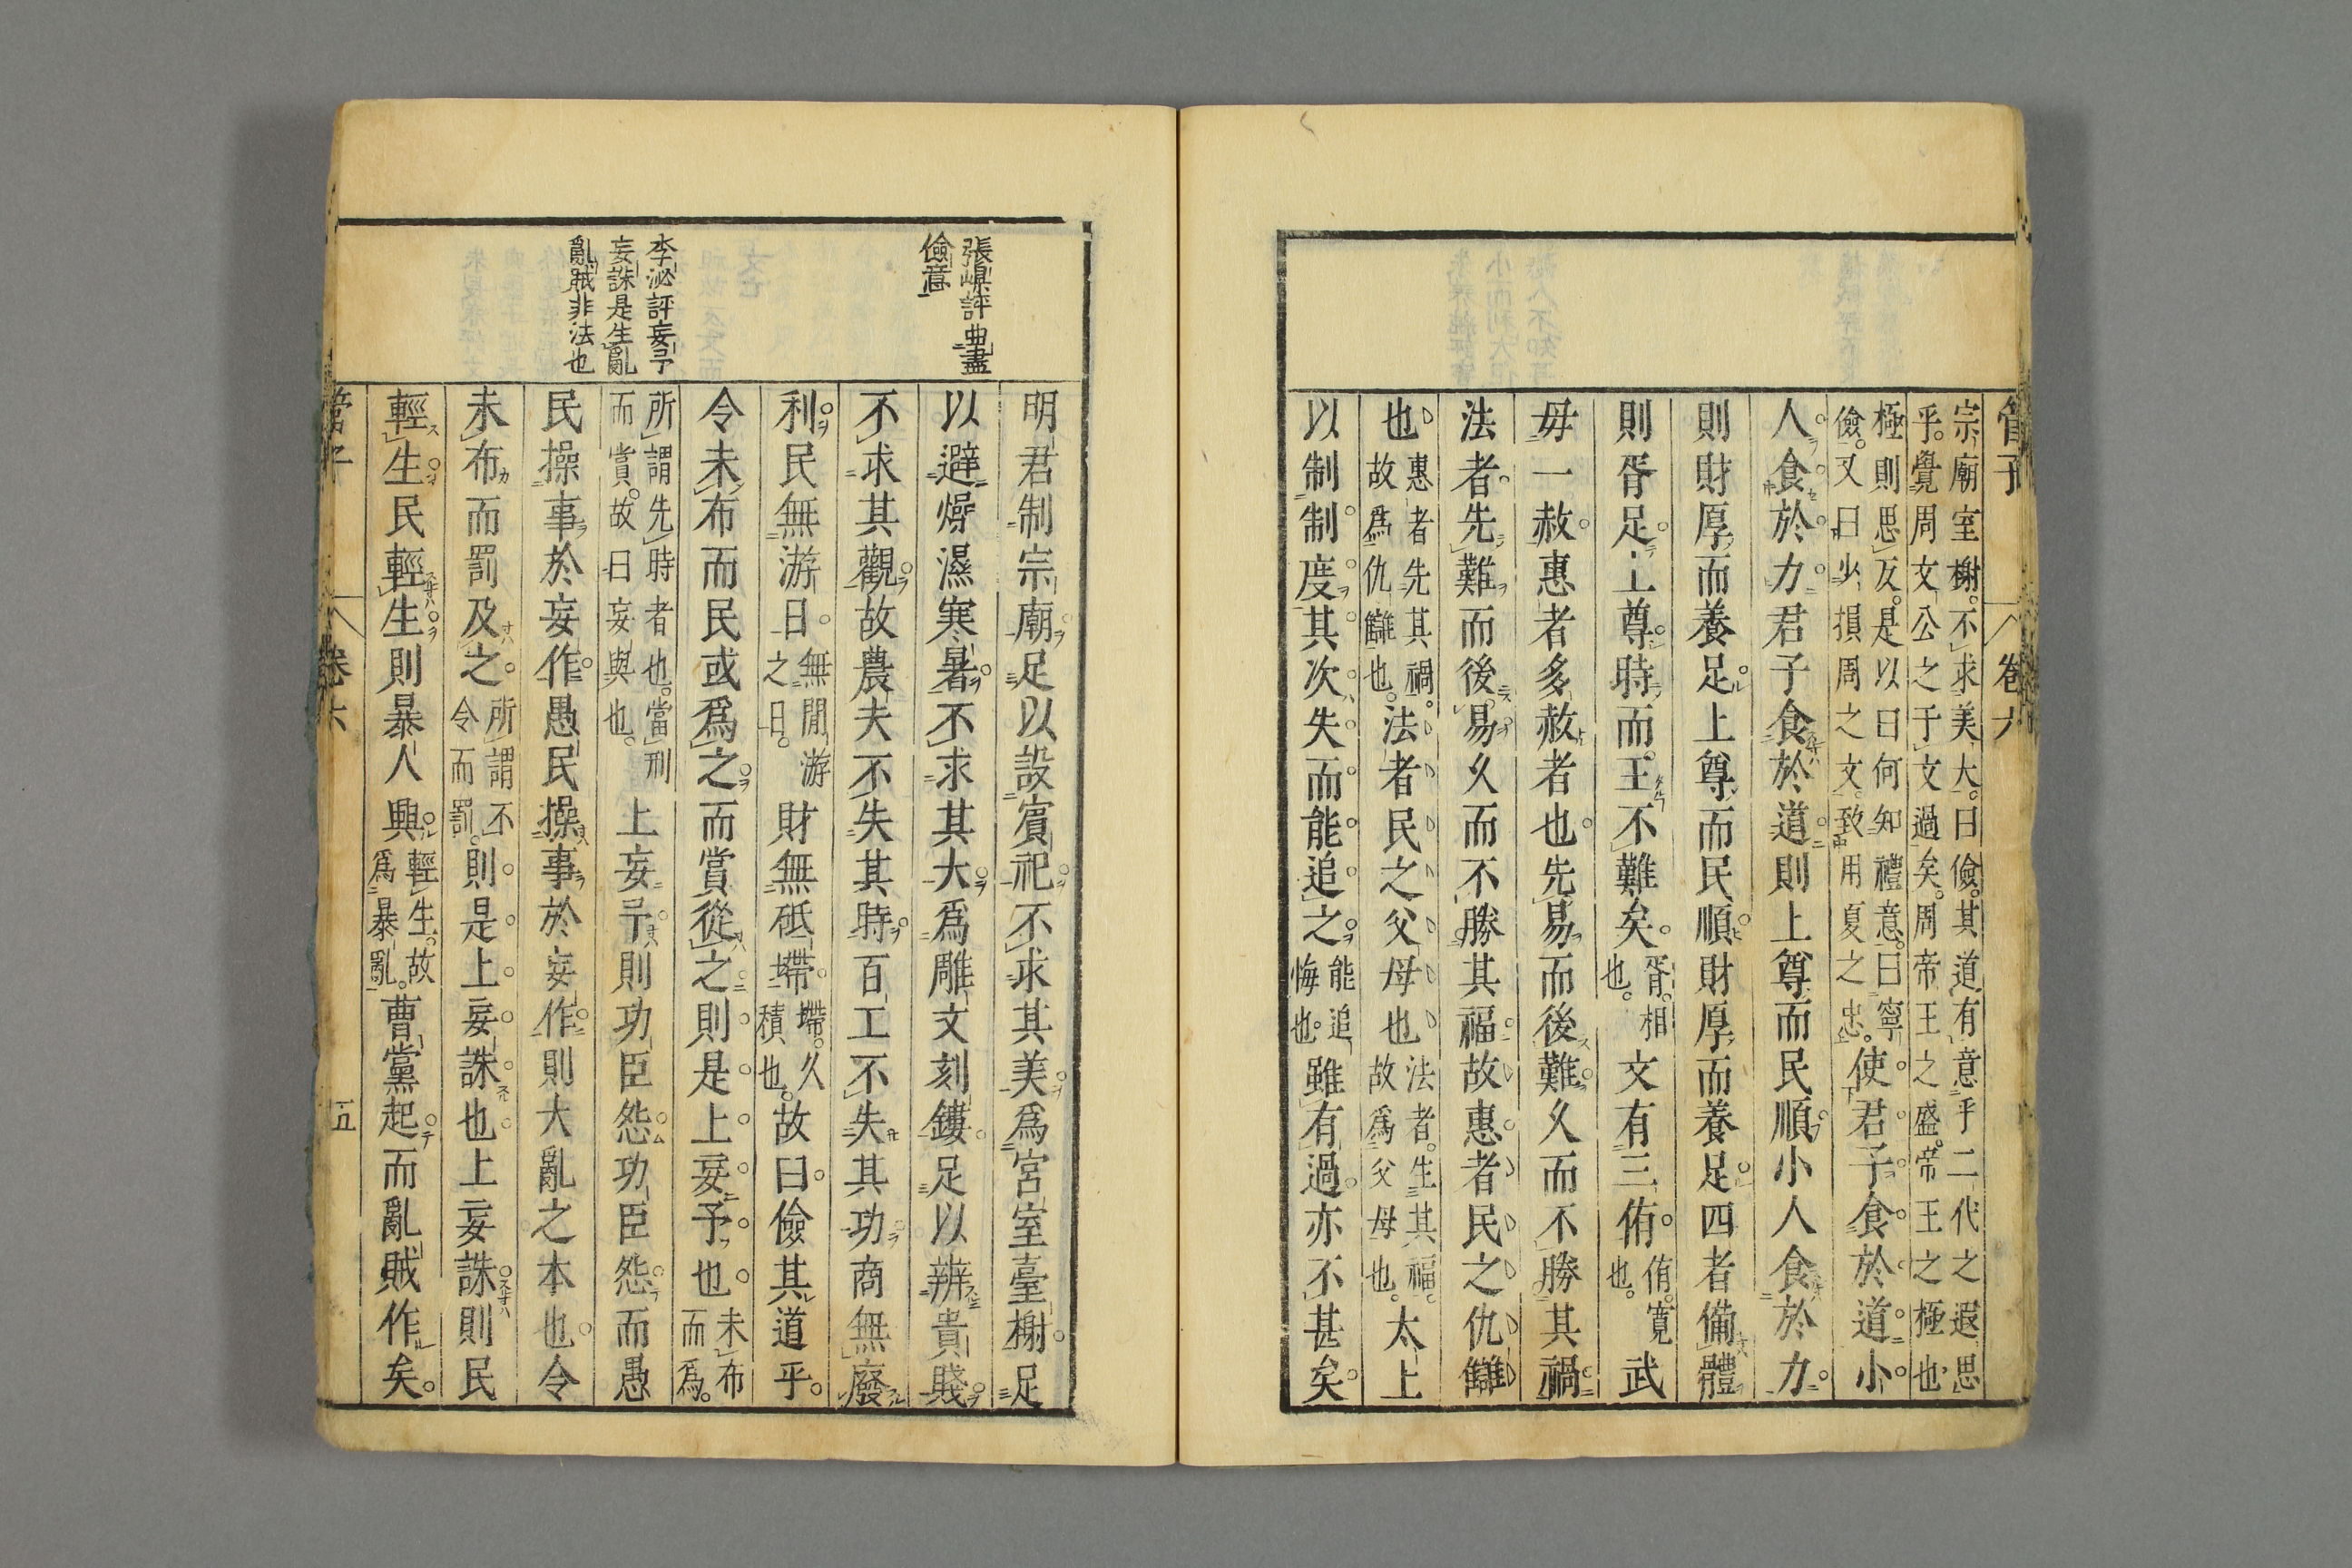 管子 卷六
宗廟室榭。不求美大。曰儉。其道有意乎二代之遐思
乎。覺周文公之于文過矣。周帝王之盛。帝王之極也
極則思反。是以曰何知禮意。曰寧
儉。又曰少損周之文。致用夏之忠。
使君子食於道小
人食於力君子食於道則上尊而民順小人食於力
則財厚而養足上尊而民順財厚而養足四者備體
則胥足上尊時而王不難矣
胥。相
也。
文有三侑
侑。寬
也。
武
毋一赦惠者多赦者也先易而後難久而不勝其禍
法者先難而後易久而不勝其福故惠者民之仇讎
也
惠者先其禍。
故爲仇讎也。
法者民之父母也
法者。生其福。
故爲父母也。
太上
以制制度其次失而能追之
能追
悔也。
雖有過亦不甚矣
明君制宗廟足以設賓祀不求其美爲宮室臺榭足
以避燥濕寒暑不求其大爲雕文刻鏤足以辨貴賤
不求其觀故農夫不失其時百工不失其功商無廢
利民無游日
無閒游
之日。
財無砥墆
墆。久
積也。
故曰儉其道乎
令未布而民或爲之而賞從之則是上妄予也
未布
而爲。
所謂先時者也。當刑
而賞。故曰妄與也。
上妄予則功臣怨功臣怨而愚
民操事於妄作愚民操事於妄作則大亂之本也令
未布而罰及之
所謂不
令而罰。
則是上妄誅也上妄誅則民
輕生民輕生則暴人興
輕生。故
爲暴亂。
曹黨起而亂賊作矣
管子 卷六 五
張嵲評曲盡
儉意
李泌評妄予
妄誅是生亂
亂賊非法也